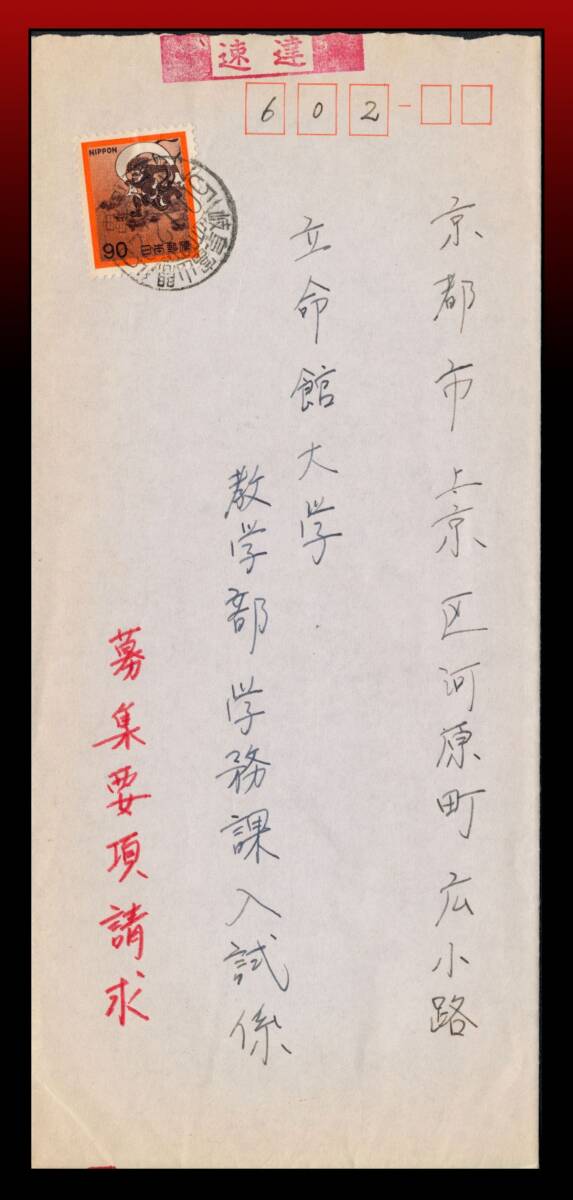 速達
602
NIPPON
90
日本郵便
京都市上京区河原町広小路
立命館大学
教学部学務課入試係
募集要項請求